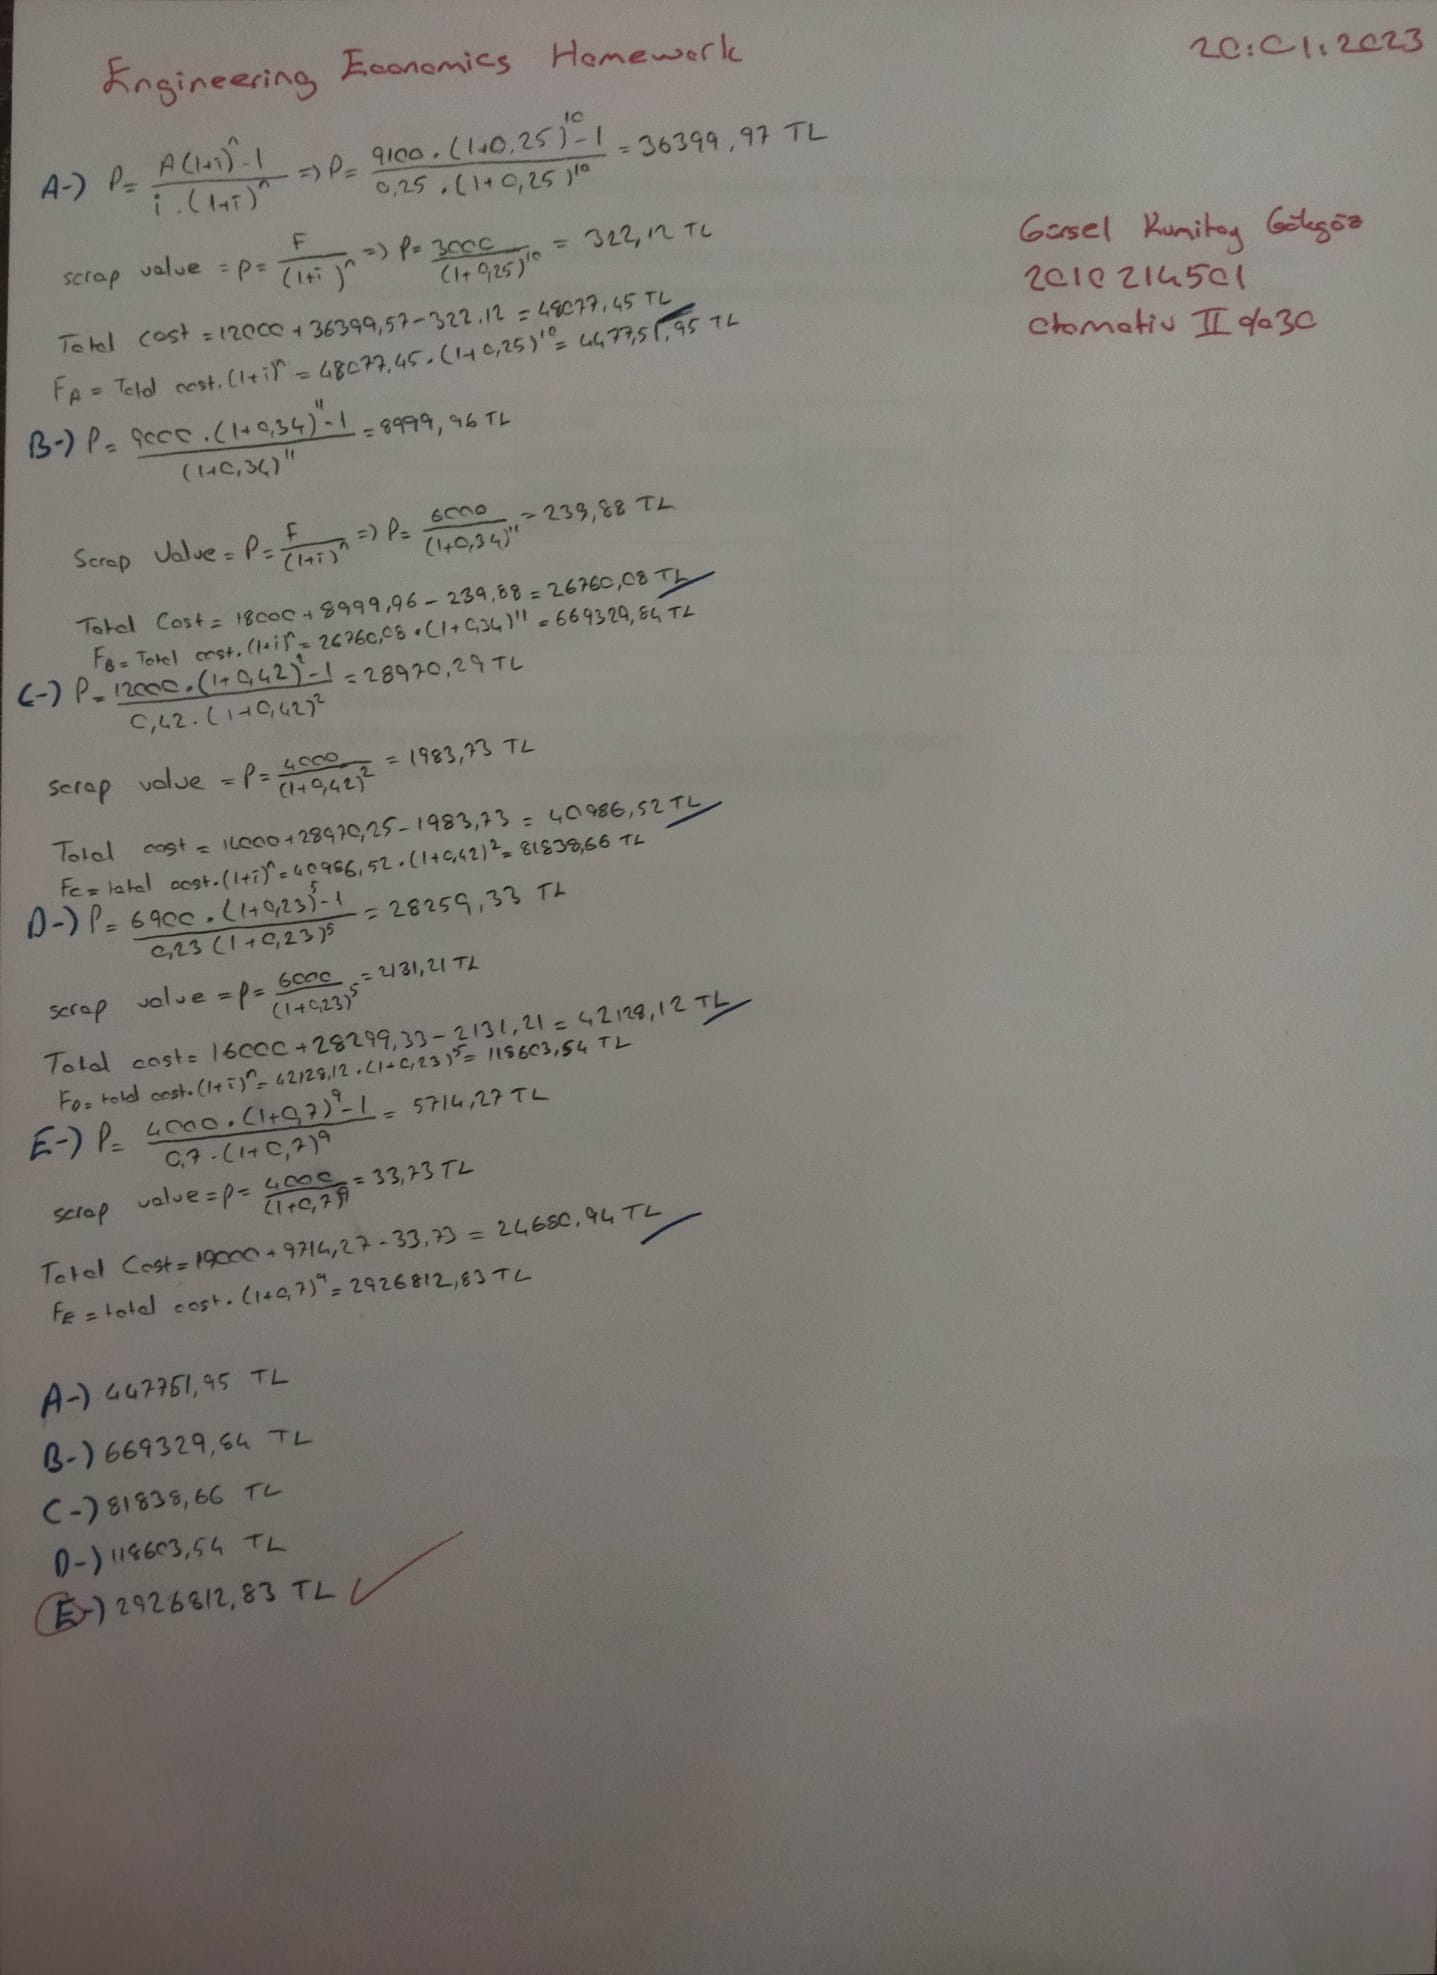 Engineering Economics Homework
20.01.2023
A-) P = A(1+i)^n-1 / i.(1+i)^n => P = 9100.(1+0,25)^10-1 / 0,25.(1+0,25)^10 = 36399,97 TL
scrap value = P = F / (1+i)^n => P = 3000 / (1+0,25)^10 = 322,12 TL
Total cost = 12000 + 36399,57 - 322.12 = 48077,45 TL
FA = Total cost.(1+i)^n = 48077,45.(1+0,25)^10 = 447751,95 TL
Gürsel Kumitay Gökgöz
2010214501
otomotiv II %30
B-) P = 9000.(1+0,34)^11-1 / (1+0,34)^11 = 8999,96 TL
Scrap Value = P = F / (1+i)^n => P = 6000 / (1+0,34)^11 = 239,88 TL
Total Cost = 18000 + 8999,96 - 239,88 = 26760,08 TL
FB = Total cost.(1+i)^n = 26760,08.(1+0,34)^11 = 669329,84 TL
C-) P = 12000.(1+0,42)^2-1 / 0,42.(1+0,42)^2 = 28970,29 TL
scrap value = P = 4000 / (1+0,42)^2 = 1983,73 TL
Total cost = 14000 + 28970,25 - 1983,73 = 40986,52 TL
FC = total cost.(1+i)^n = 40986,52.(1+0,42)^2 = 81838,66 TL
D-) P = 6900.(1+0,23)^5-1 / 0,23(1+0,23)^5 = 28259,33 TL
scrap value = P = 6000 / (1+0,23)^5 = 2131,21 TL
Total cost = 16000 + 28299,33 - 2131,21 = 42128,12 TL
FD = total cost.(1+i)^n = 42128,12.(1+0,23)^5 = 118603,54 TL
E-) P = 4000.(1+0,7)^9-1 / 0,7.(1+0,7)^9 = 5714,27 TL
scrap value = P = 4000 / (1+0,7)^9 = 33,73 TL
Total Cost = 19000 + 9714,27 - 33,73 = 24680,94 TL
FE = total cost.(1+0,7)^9 = 2926812,83 TL
A-) 447751,95 TL
B-) 669329,84 TL
C-) 81838,66 TL
D-) 118603,54 TL
E-) 2926812,83 TL